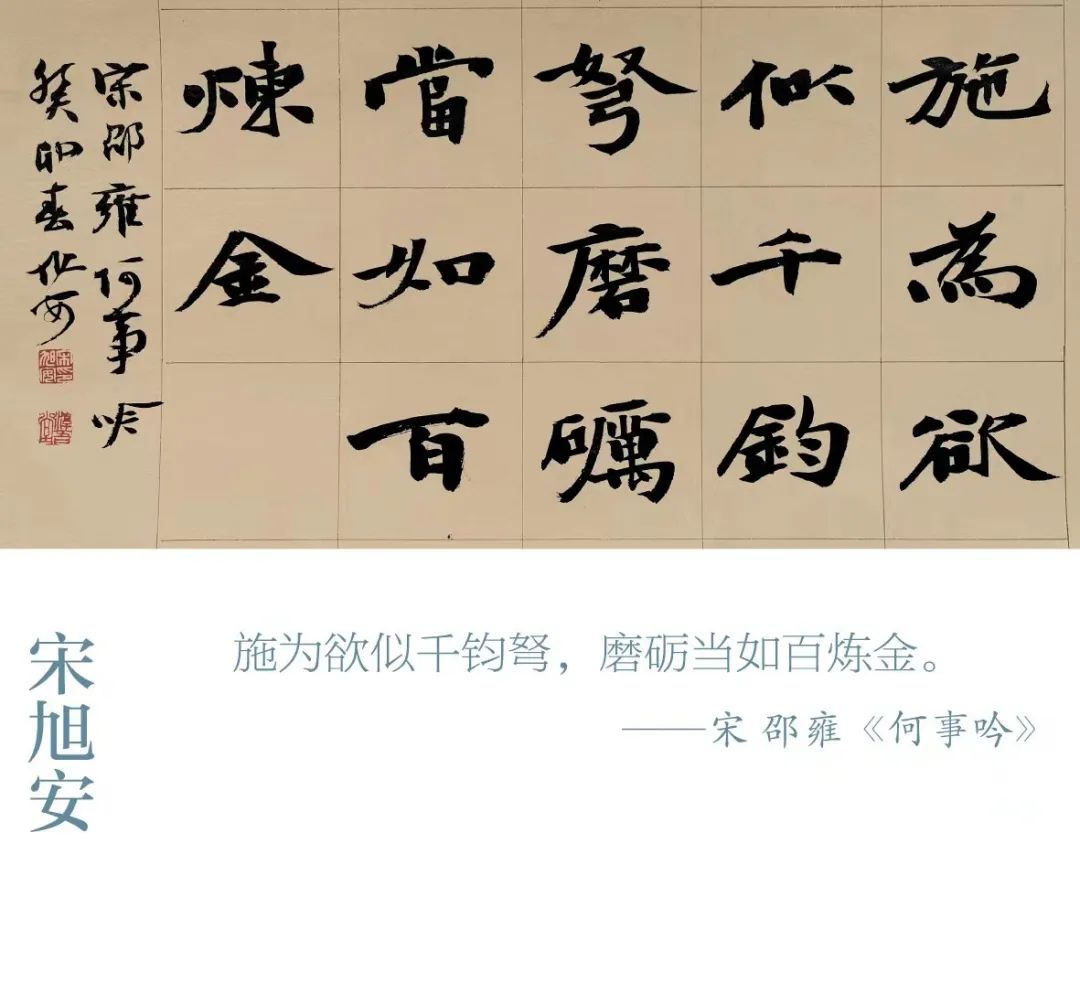 施為欲
似千鈞
弩磨礪
當如百
煉金
宋邵雍何事吟
癸卯春旭安
宋旭安
施为欲似千钧弩，磨砺当如百炼金。
——宋 邵雍《何事吟》